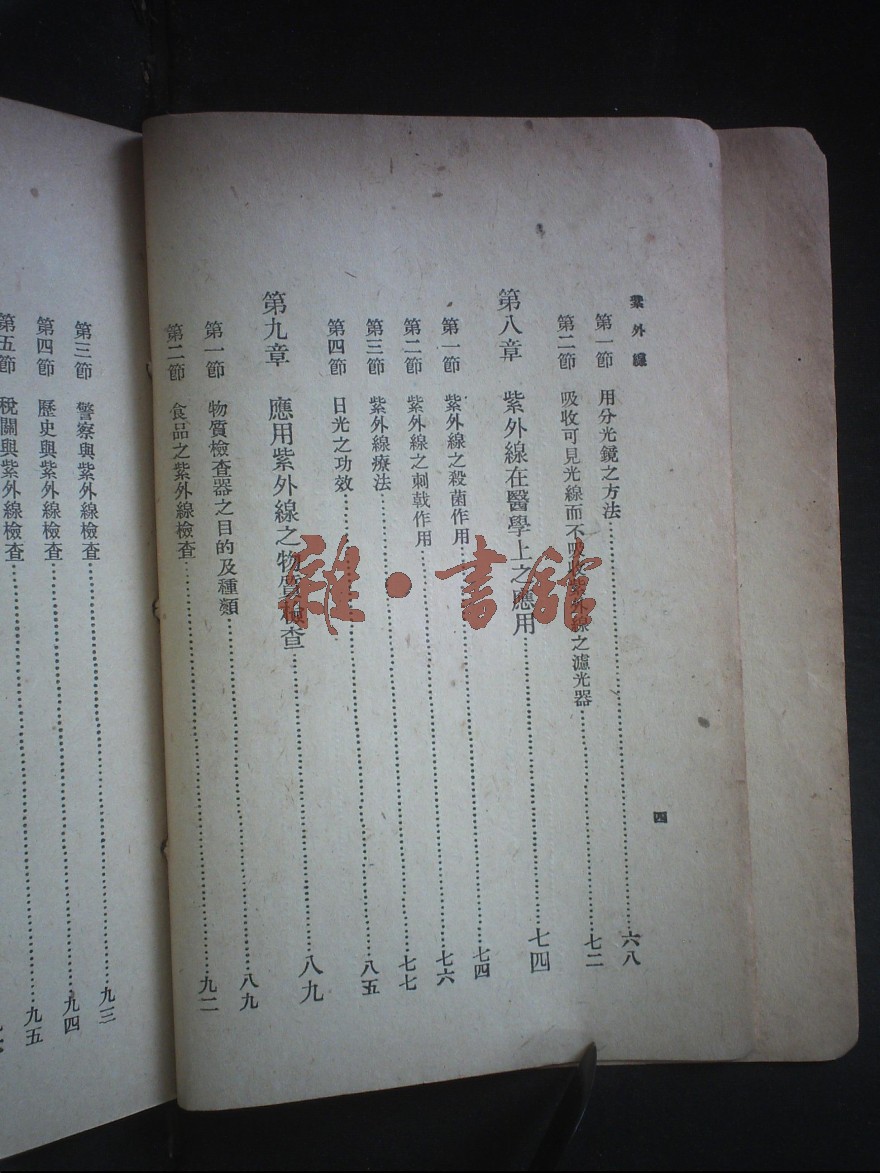 紫外線
四
第一節 用分光鏡之方法……六八
第二節 吸收可見光線而不吸收紫外線之濾光器……七二
第八章 紫外線在醫學上之應用……七四
第一節 紫外線之殺菌作用……七四
第二節 紫外線之刺戟作用……七六
第三節 紫外線療法……七七
第四節 日光之功效……八五
第九章 應用紫外線之物質檢查……八九
第一節 物質檢查器之目的及種類……八九
第二節 食品之紫外線檢查……九二
第三節 警察與紫外線檢查……九三
第四節 歷史與紫外線檢查……九四
第五節 稅關與紫外線檢查……九五
雜·書館